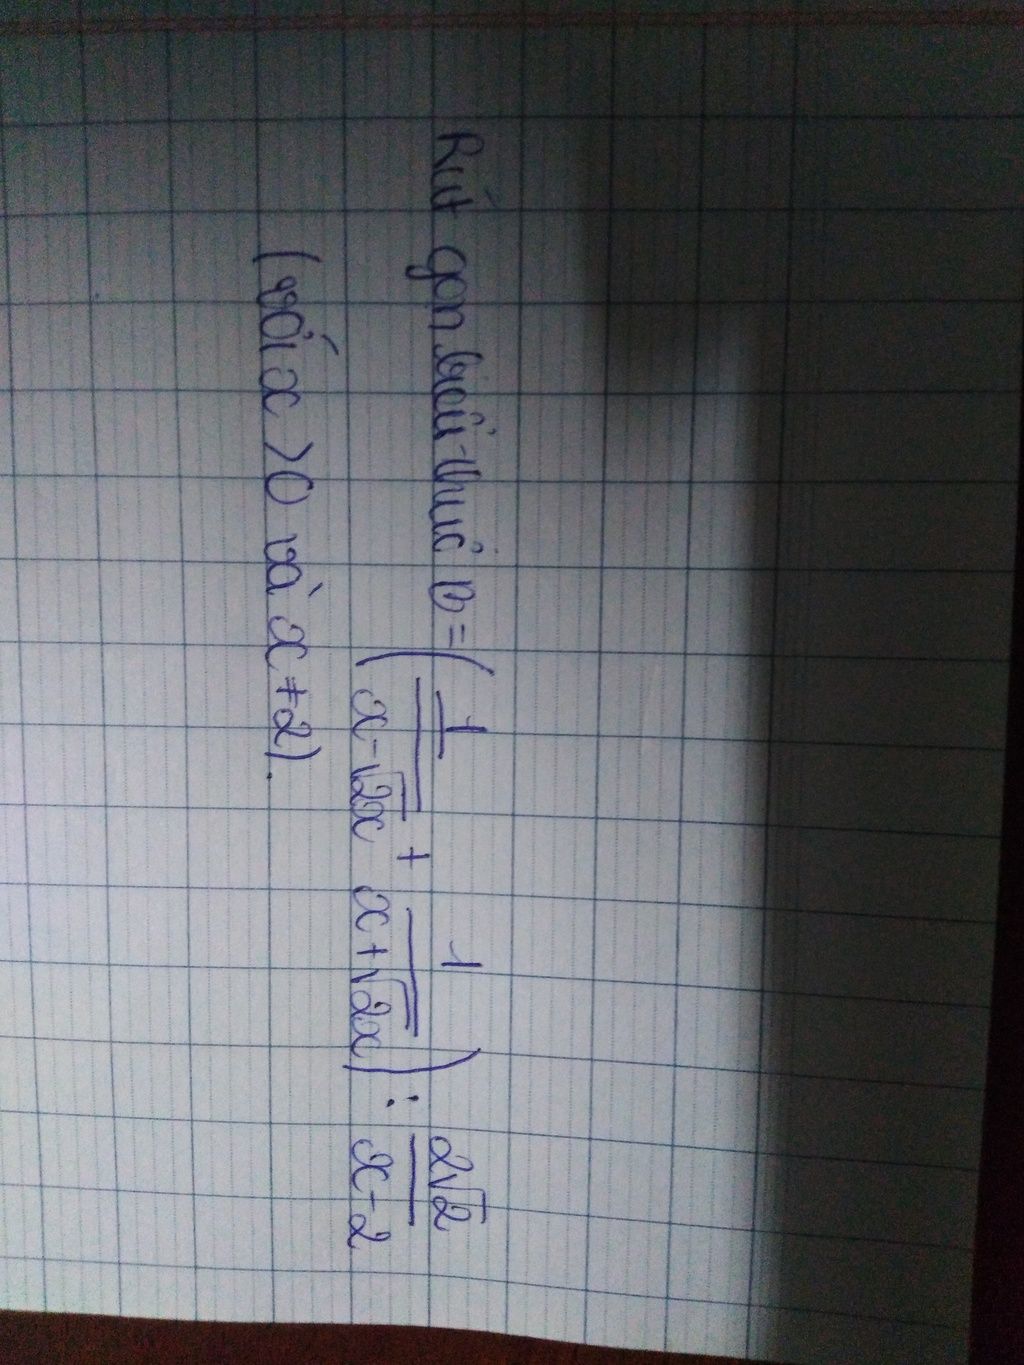 Rút gọn biểu thức B = ( 1/(x - √2x) + 1/(x + √2x) ) : 2√2/(x - 2)
(với x > 0 và x ≠ 2).